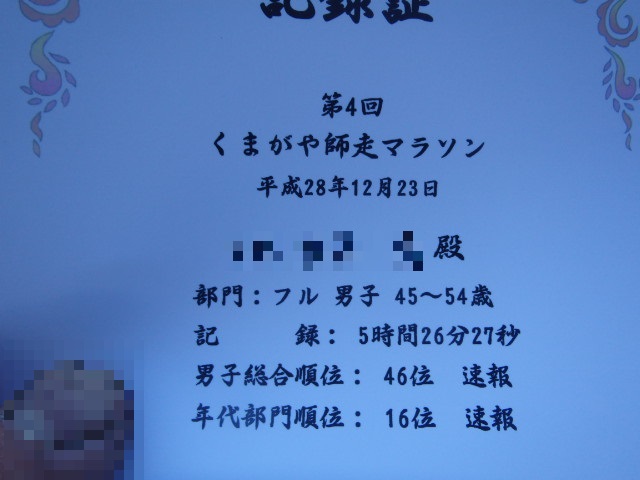 記録証
第4回
くまがや師走マラソン
平成28年12月23日
殿
部門：フル 男子 45～54歳
記 録： 5時間26分27秒
男子総合順位： 46位 速報
年代部門順位： 16位 速報